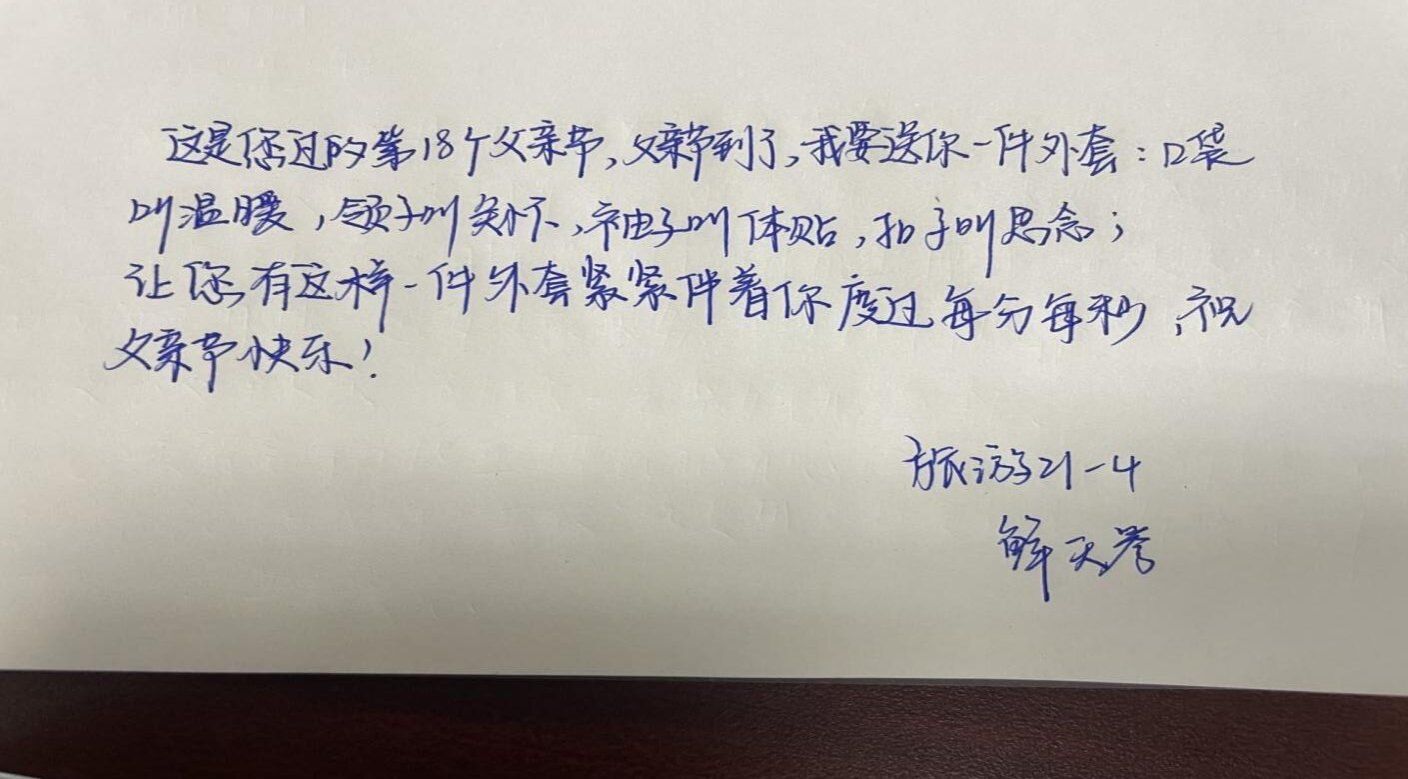 这是您过的第18个父亲节,父亲节到了,我要送你一件外套:口袋
叫温暖,领子叫关怀,袖子叫体贴,扣子叫思念;
让您有这样一件外套紧紧伴着你度过每分每秒,祝
父亲节快乐!
旅游21-4
鲜天誉